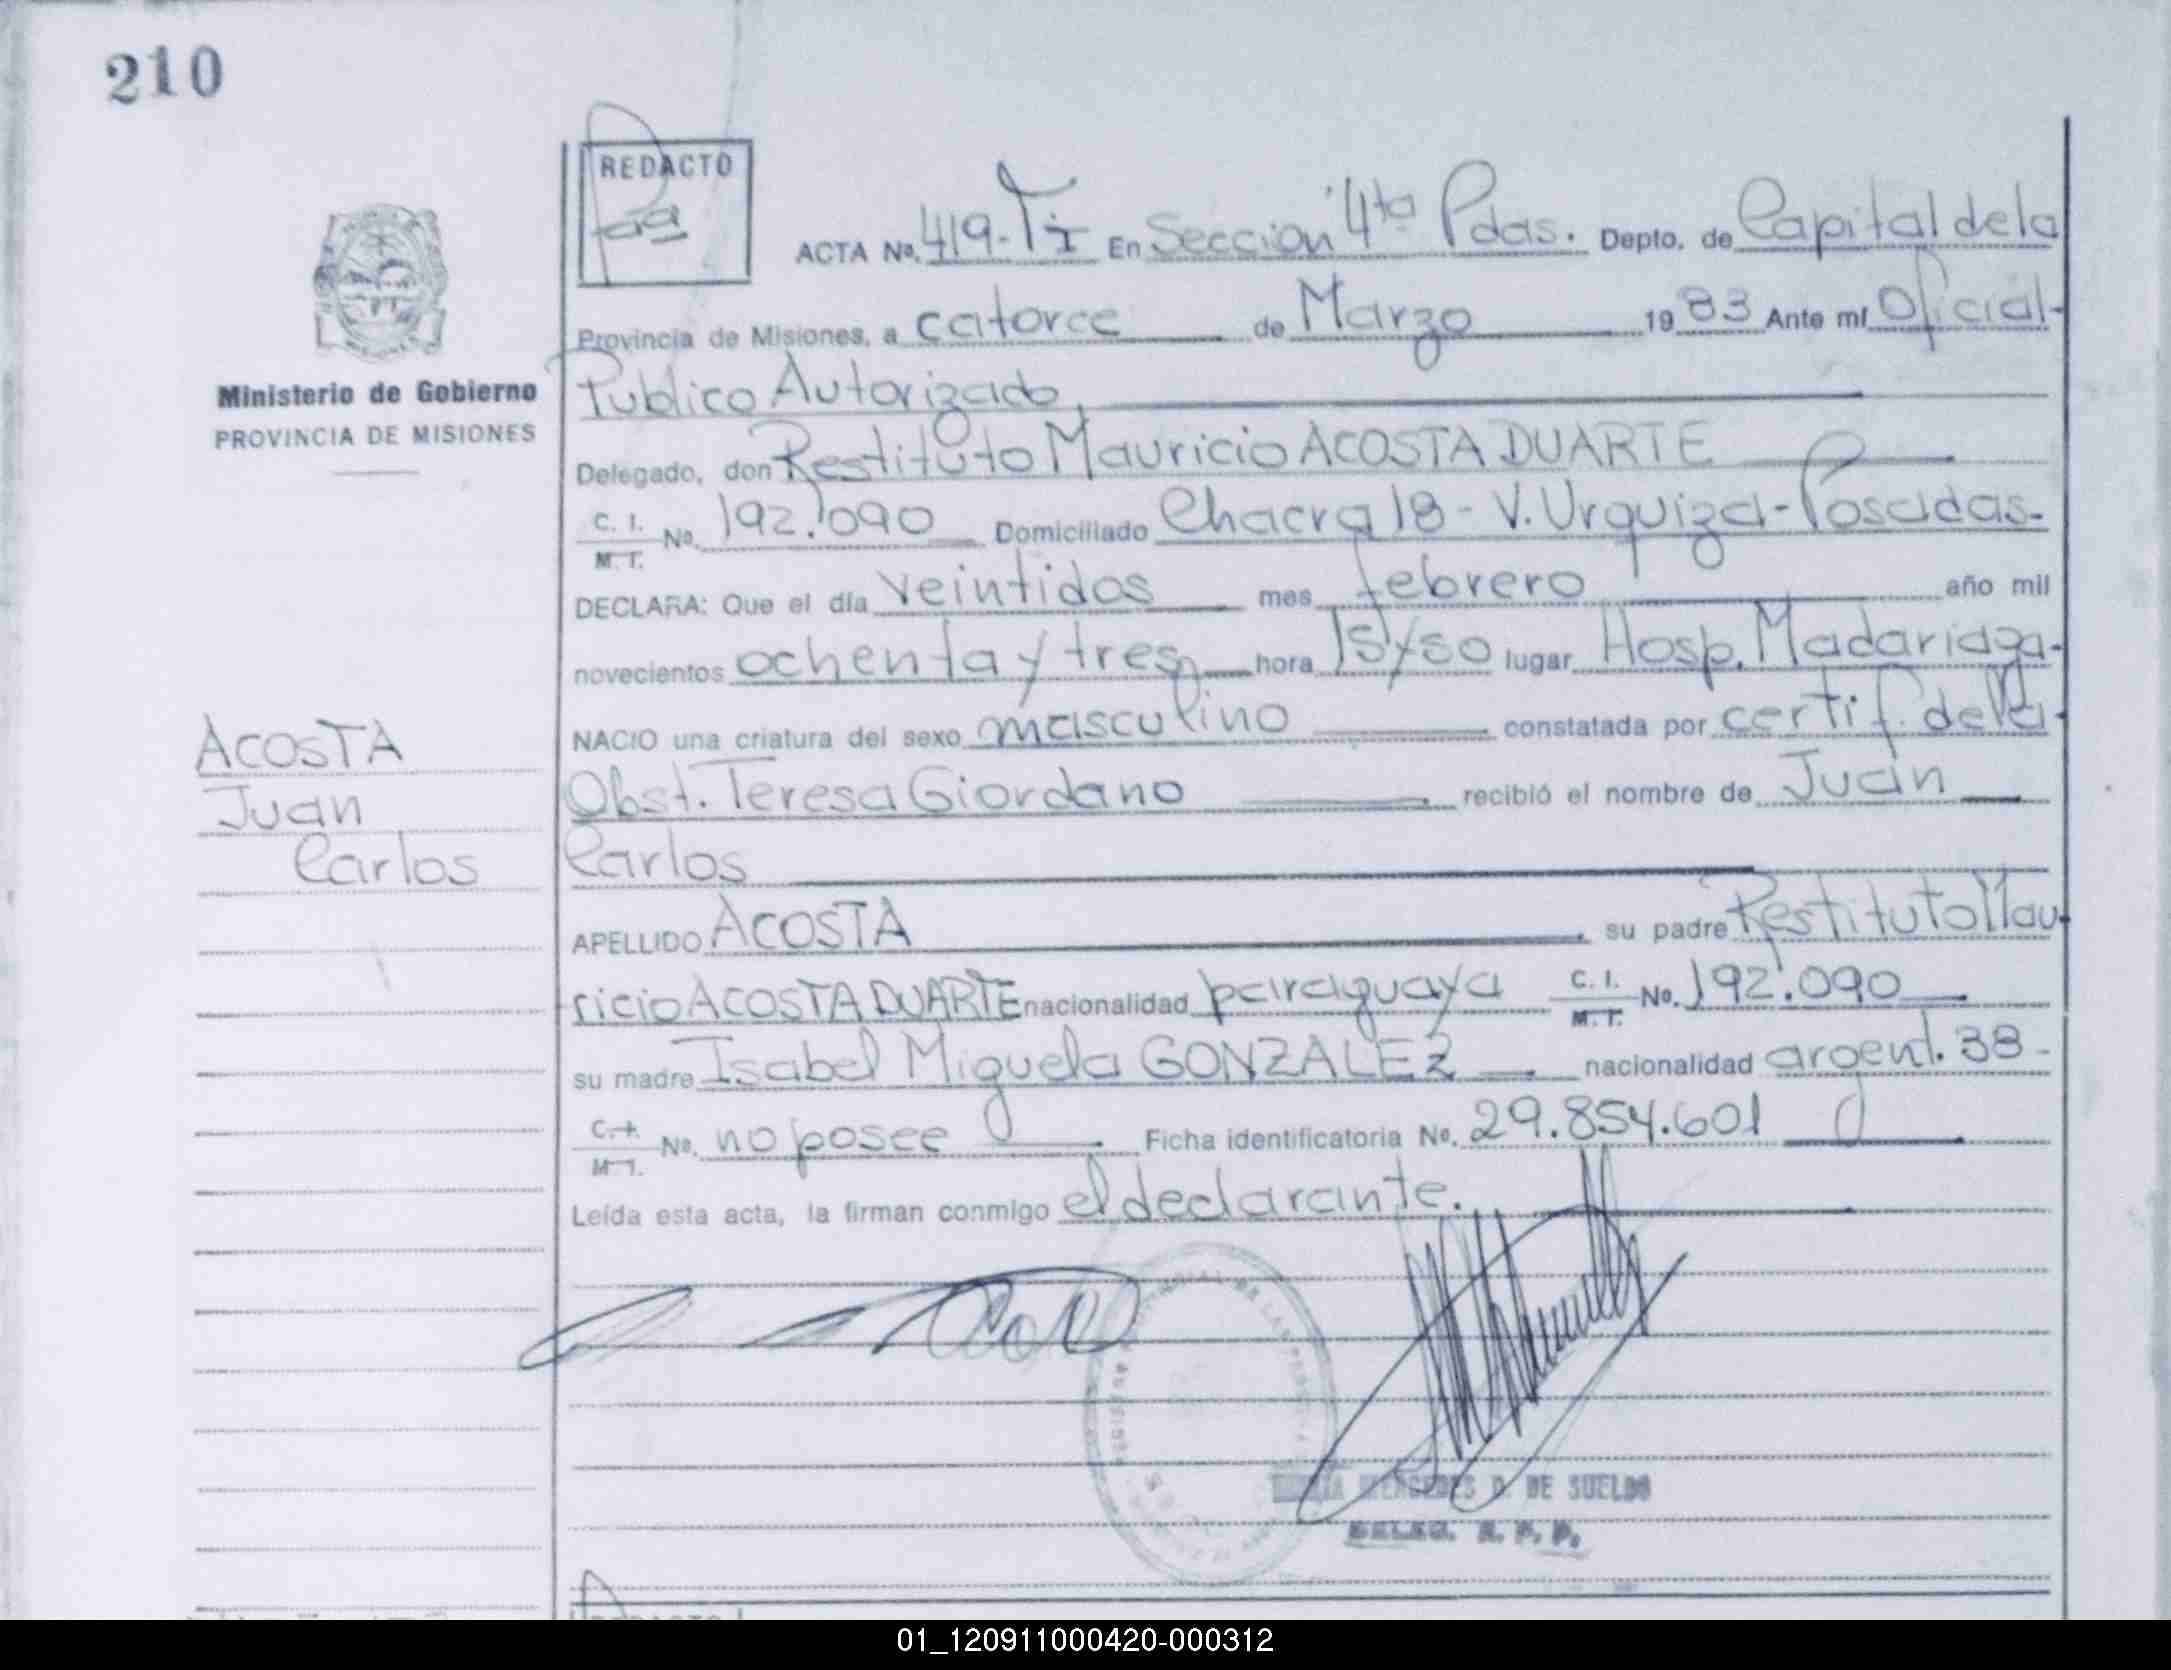 210
REDACTO
ACTA No. 419. TI En Sección 4ta Pdas. Depto. de Capital de la
Provincia de Misiones, a catorce de Marzo 1983 Ante mí Oficial
Público Autorizado
Delegado, don Restituto Mauricio ACOSTA DUARTE
C. I.
M. T. No. 192.090 Domiciliado Chacra 18 - V. Urquiza - Posadas.
DECLARA: Que el día veintidos mes febrero año mil
novecientos ochenta y tres hora 15 y 50 lugar Hosp. Madariaga.
NACIO una criatura del sexo masculino constatada por certif. de la
Obst. Teresa Giordano recibió el nombre de Juan
Carlos
APELLIDO ACOSTA su padre Restituto Mau
ricio ACOSTA DUARTE nacionalidad paraguaya C. I. M. T. No. 192.090
su madre Isabel Miguela GONZALEZ nacionalidad argent. 38 -
C. I.
M. I. No. no posee Ficha identificatoria No. 29.854.601
Leída esta acta, la firman conmigo el declarante.
MERCEDES D. DE SUELDO
DELEG. R. P. P.
Ministerio de Gobierno
PROVINCIA DE MISIONES
ACOSTA
Juan
Carlos
01_120911000420-000312